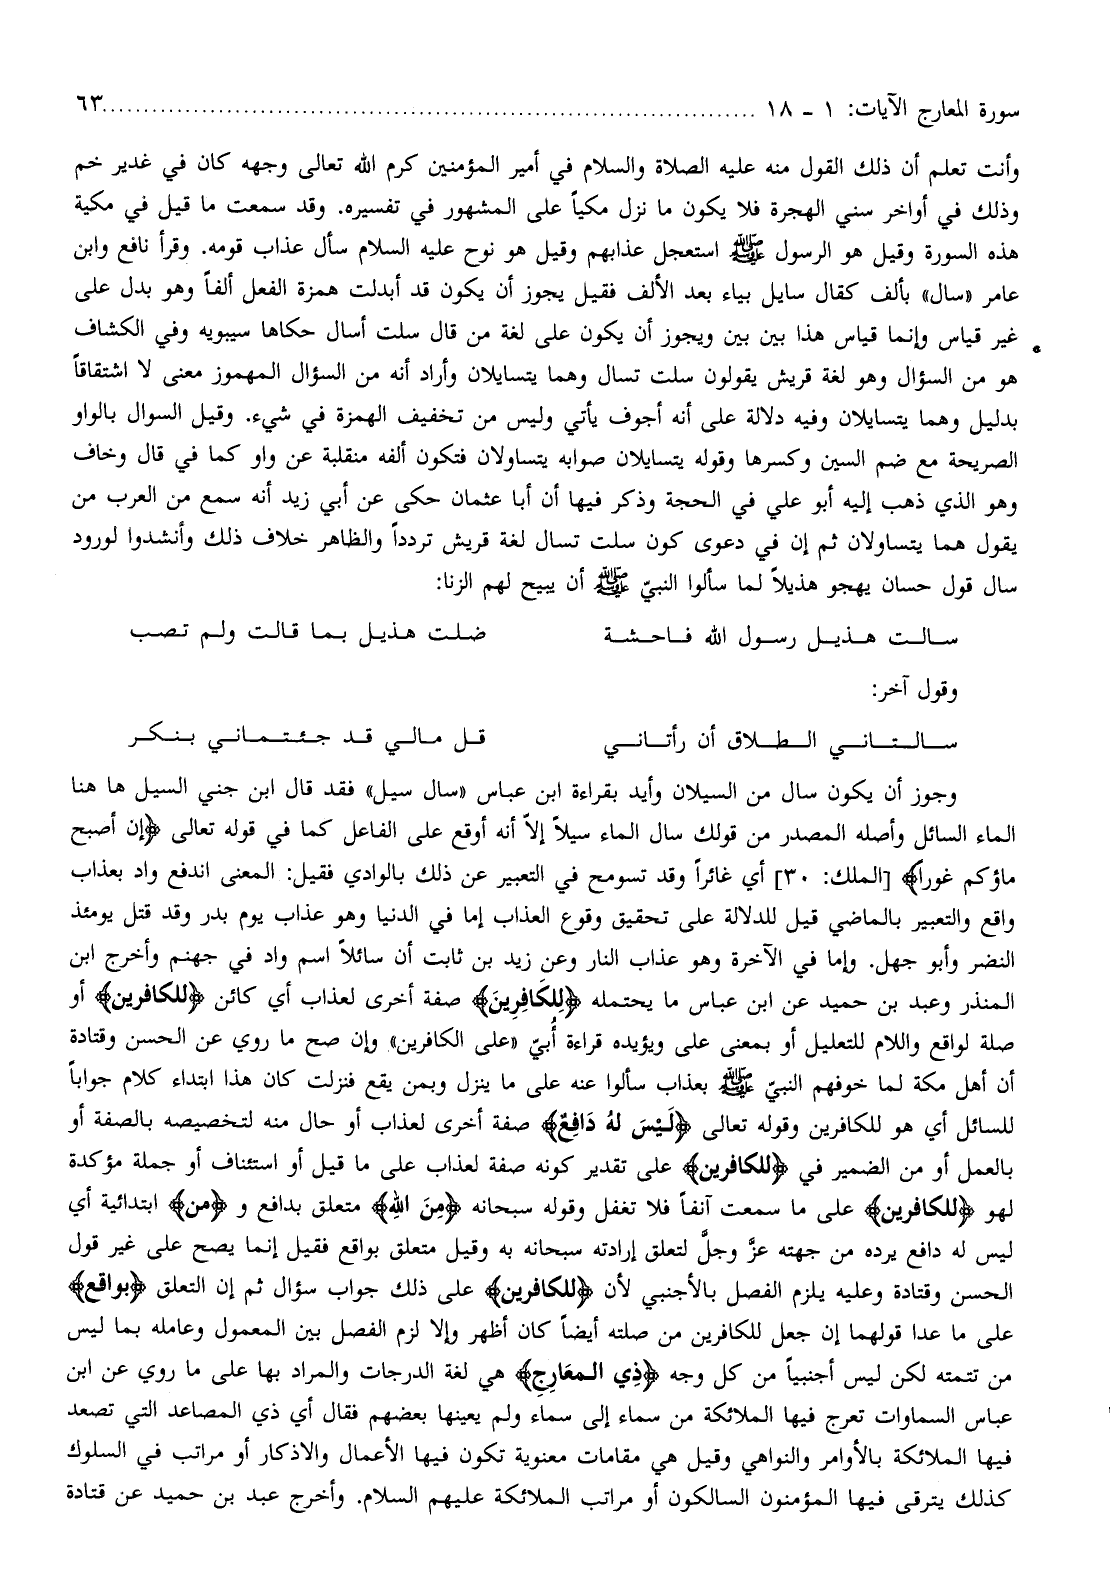 سورة المعارج الآيات: ١ - ١٨ ................................................................................ ٦٣
وأنت تعلم أن ذلك القول منه عليه الصلاة والسلام في أمير المؤمنين كرم الله تعالى وجهه كان في غدير خم
وذلك في أواخر سني الهجرة فلا يكون ما نزل مكياً على المشهور في تفسيره. وقد سمعت ما قيل في مكية
هذه السورة وقيل هو الرسول ﷺ استعجل عذابهم وقيل هو نوح عليه السلام سأل عذاب قومه. وقرأ نافع وابن
عامر «سال» بألف كقال سايل بياء بعد الألف فقيل يجوز أن يكون قد أبدلت همزة الفعل ألفاً وهو بدل على
غير قياس وإنما قياس هذا بين بين ويجوز أن يكون على لغة من قال سلت أسال حكاها سيبويه وفي الكشاف
هو من السؤال وهو لغة قريش يقولون سلت تسال وهما يتسايلان وأراد أنه من السؤال المهموز معنى لا اشتقاقاً
بدليل وهما يتسايلان وفيه دلالة على أنه أجوف يأتي وليس من تخفيف الهمزة في شيء. وقيل السوال بالواو
الصريحة مع ضم السين وكسرها وقوله يتسايلان صوابه يتساولان فتكون ألفه منقلبة عن واو كما في قال وخاف
وهو الذي ذهب إليه أبو علي في الحجة وذكر فيها أن أبا عثمان حكى عن أبي زيد أنه سمع من العرب من
يقول هما يتساولان ثم إن في دعوى كون سلت تسال لغة قريش تردداً والظاهر خلاف ذلك وأنشدوا لورود
سال قول حسان يهجو هذيلاً لما سألوا النبيّ ﷺ أن يبيح لهم الزنا:
سالت هذيل رسول الله فاحشة ضلت هذيل بما قالت ولم تصب
وقول آخر:
سالتاني الطلاق أن رأتاني قل مالي قد جئتماني بنكر
وجوز أن يكون سال من السيلان وأيد بقراءة ابن عباس «سال سيل» فقد قال ابن جني السيل ها هنا
الماء السائل وأصله المصدر من قولك سال الماء سيلاً إلاّ أنه أوقع على الفاعل كما في قوله تعالى ﴿إن أصبح
ماؤكم غوراً﴾ [الملك: ٣٠] أي غائراً وقد تسومح في التعبير عن ذلك بالوادي فقيل: المعنى اندفع واد بعذاب
واقع والتعبير بالماضي قيل للدلالة على تحقيق وقوع العذاب إما في الدنيا وهو عذاب يوم بدر وقد قتل يومئذ
النضر وأبو جهل. وإما في الآخرة وهو عذاب النار وعن زيد بن ثابت أن سائلاً اسم واد في جهنم وأخرج ابن
المنذر وعبد بن حميد عن ابن عباس ما يحتمله ﴿لِلكَافِرِينَ﴾ صفة أخرى لعذاب أي كائن ﴿للكافرين﴾ أو
صلة لواقع واللام للتعليل أو بمعنى على ويؤيده قراءة أُبيّ «على الكافرين» وإن صح ما روي عن الحسن وقتادة
أن أهل مكة لما خوفهم النبيّ ﷺ بعذاب سألوا عنه على ما ينزل وبمن يقع فنزلت كان هذا ابتداء كلام جواباً
للسائل أي هو للكافرين وقوله تعالى ﴿لَيْسَ لهُ دَافِعٌ﴾ صفة أخرى لعذاب أو حال منه لتخصيصه بالصفة أو
بالعمل أو من الضمير في ﴿للكافرين﴾ على تقدير كونه صفة لعذاب على ما قيل أو استئناف أو جملة مؤكدة
لهو ﴿للكافرين﴾ على ما سمعت آنفاً فلا تغفل وقوله سبحانه ﴿مِنَ اللهِ﴾ متعلق بدافع و ﴿من﴾ ابتدائية أي
ليس له دافع يرده من جهته عزَّ وجلَّ لتعلق إرادته سبحانه به وقيل متعلق بواقع فقيل إنما يصح على غير قول
الحسن وقتادة وعليه يلزم الفصل بالأجنبي لأن ﴿للكافرين﴾ على ذلك جواب سؤال ثم إن التعلق ﴿بواقع﴾
على ما عدا قولهما إن جعل للكافرين من صلته أيضاً كان أظهر وإلا لزم الفصل بين المعمول وعامله بما ليس
من تتمته لكن ليس أجنبياً من كل وجه ﴿ذِي المعَارِجِ﴾ هي لغة الدرجات والمراد بها على ما روي عن ابن
عباس السماوات تعرج فيها الملائكة من سماء إلى سماء ولم يعينها بعضهم فقال أي ذي المصاعد التي تصعد
فيها الملائكة بالأوامر والنواهي وقيل هي مقامات معنوية تكون فيها الأعمال والاذكار أو مراتب في السلوك
كذلك يترقى فيها المؤمنون السالكون أو مراتب الملائكة عليهم السلام. وأخرج عبد بن حميد عن قتادة